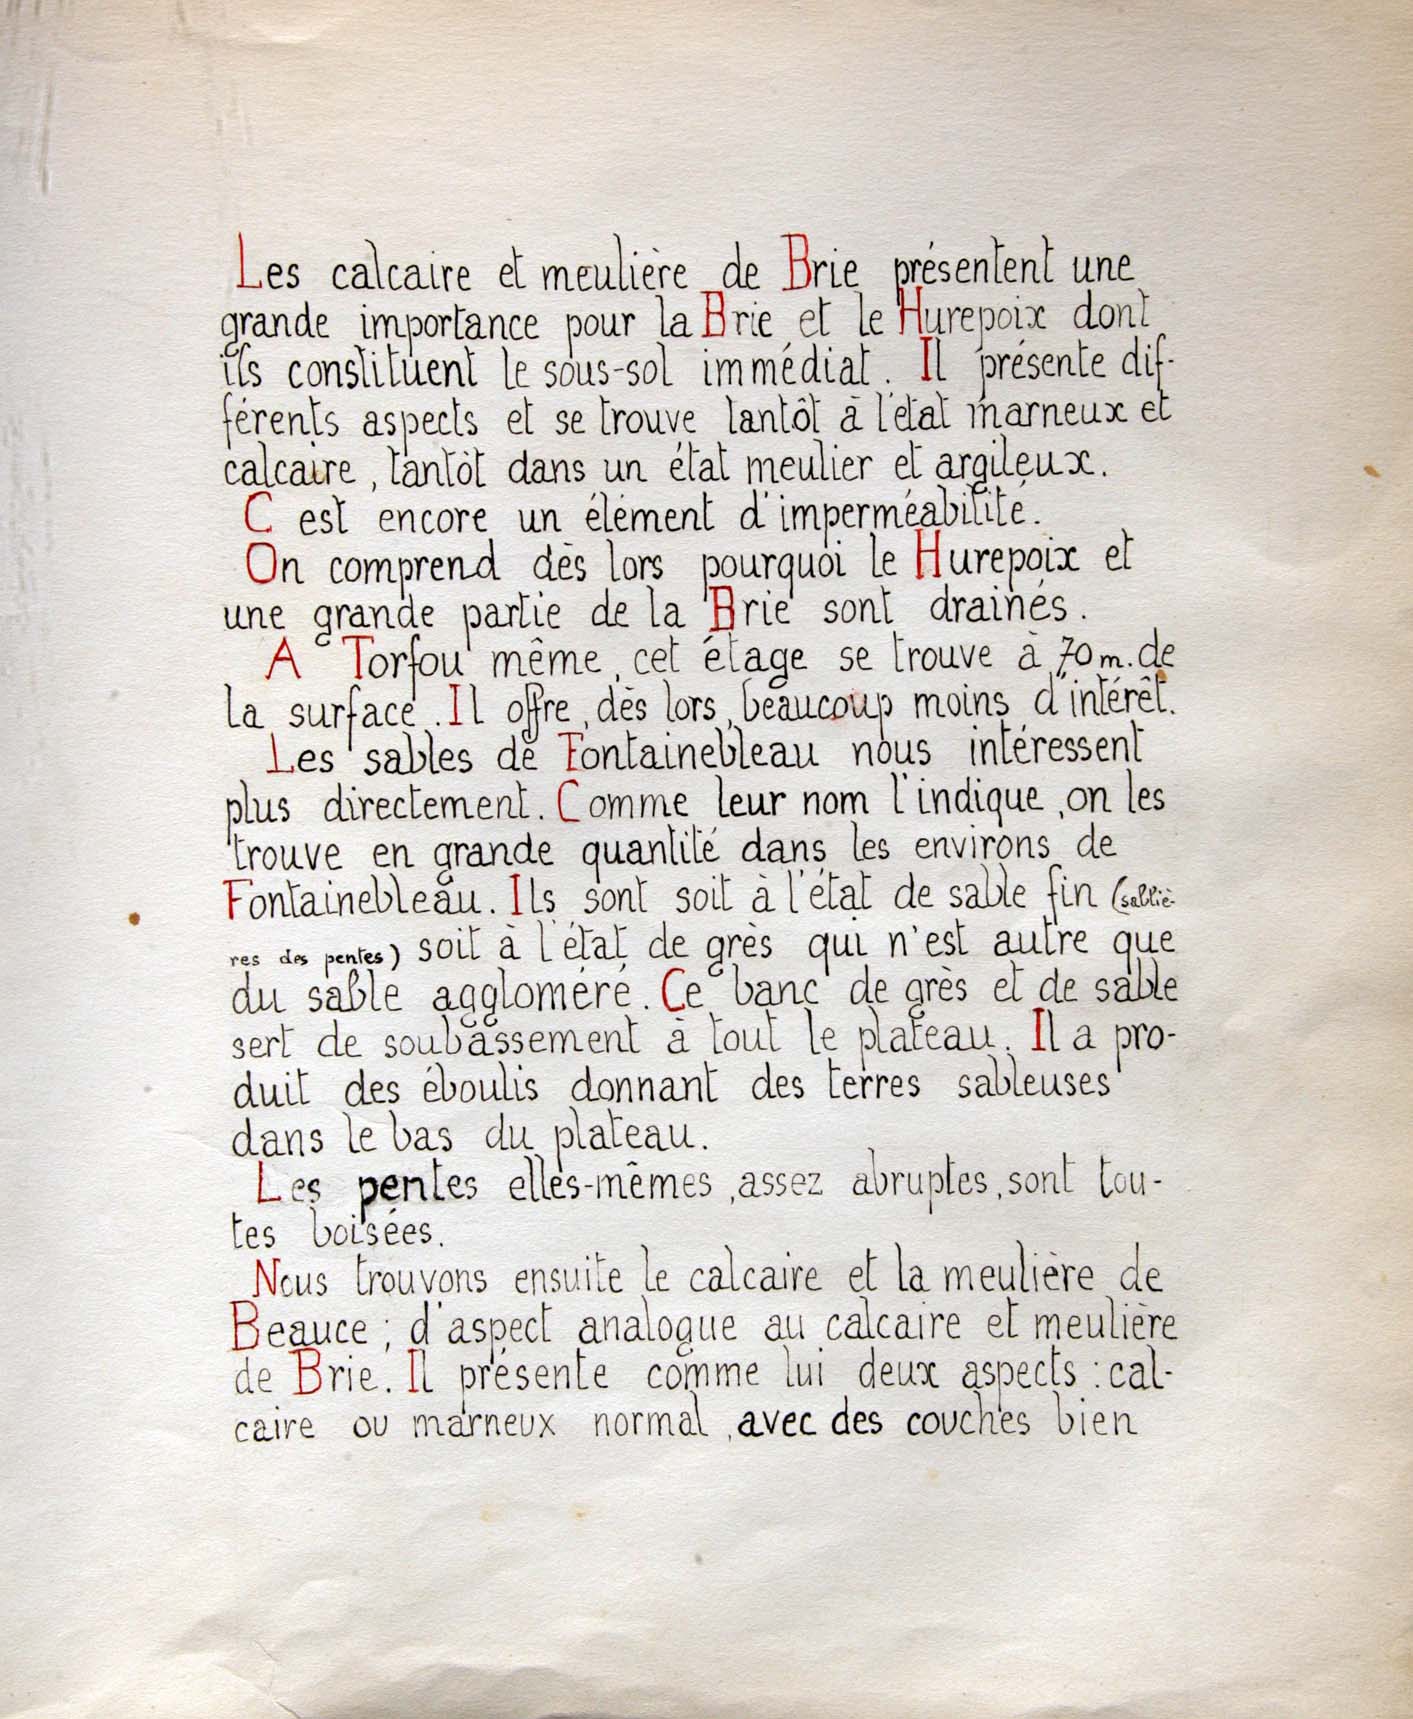 Les calcaire et meulière de Brie présentent une
grande importance pour la Brie et le Hurepoix dont
ils constituent le sous-sol immédiat. Il présente dif-
férents aspects et se trouve tantôt à l'état marneux et
calcaire, tantôt dans un état meulier et argileux.
C est encore un élément d'imperméabilité.
On comprend dès lors pourquoi le Hurepoix et
une grande partie de la Brie sont drainés.
A Torfou même, cet étage se trouve à 70 m. de
la surface. Il offre, dès lors, beaucoup moins d'intérêt.
Les sables de Fontainebleau nous intéressent
plus directement. Comme leur nom l'indique, on les
trouve en grande quantité dans les environs de
Fontainebleau. Ils sont soit à l'état de sable fin (sabliè-
res des pentes) soit à l'état de grès qui n'est autre que
du sable aggloméré. Ce banc de grès et de sable
sert de soubassement à tout le plateau. Il a pro-
duit des éboulis donnant des terres sableuses
dans le bas du plateau.
Les pentes elles-mêmes, assez abruptes, sont tou-
tes boisées.
Nous trouvons ensuite le calcaire et la meulière de
Beauce ; d'aspect analogue au calcaire et meulière
de Brie. Il présente comme lui deux aspects : cal-
caire ou marneux normal, avec des couches bien